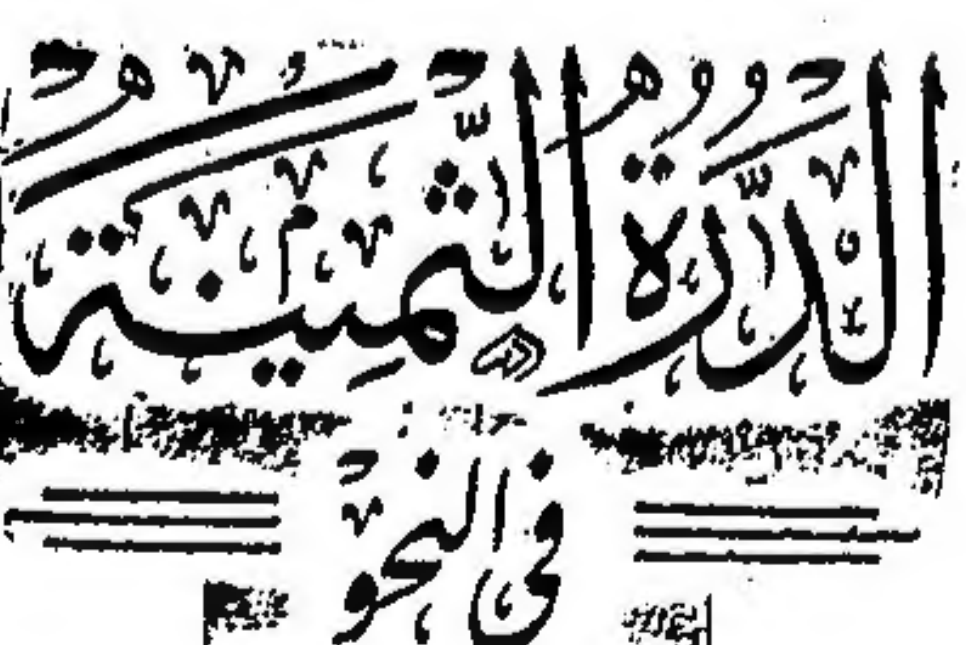 الدُّرَّةُ الثَّمِينَة
فى النحو